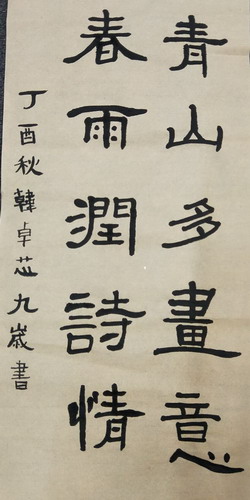 青山多畫意
春雨潤詩情
丁酉秋韓卓芯九歲書